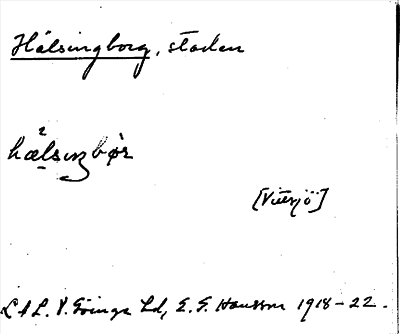 Hälsingborg, staden
hæ²lsıŋbør
[Vittsjö]
L. V. Göinge hd, E. G. Hansson 1918-22.